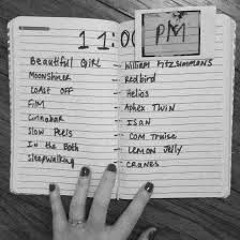 11:00
PM
Beautiful Girl - William Fitzsimmons
Moonshiner - Redbird
Coast off - Helios
Film - Aphex Twin
Cinnabar - Isan
Slow Peels - Com Truise
In the Bath - Lemon Jelly
Sleepwalking - Cranes